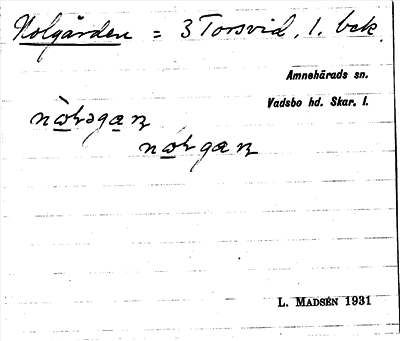 Nolgården = 3 Torsvid, 1. bek.
Amnehärads sn.
Vadsbo hd. Skar. l.
L. MADSÉN 1931